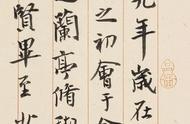 九年歲在
之初會于
之蘭亭脩禊
賢畢至少